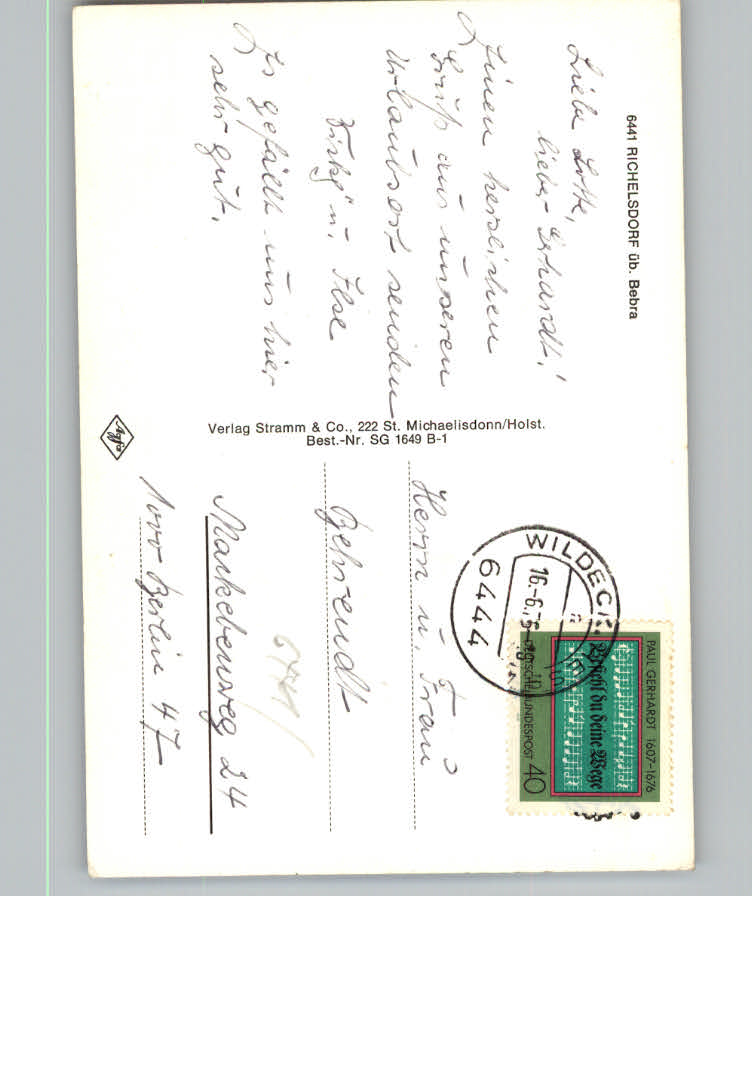 6441 RICHELSDORF üb. Bebra
Liebe Lotte,
lieber Gerhardt!
Einen herzlichen
Gruß aus unserem
Urlaubsort senden
u. Ilse
Es gefällt uns hier
sehr gut.
Verlag Stramm & Co., 222 St. Michaelisdonn/Holst.
Best.-Nr. SG 1649 B-1
Agfa
WILDECK
16.-6.76
6444
PAUL GERHARDT 1607-1676
Befiehl du deine Wege
DEUTSCHE BUNDESPOST 40
Herrn u. Frau
Behrendt
6441
1000 Berlin 47